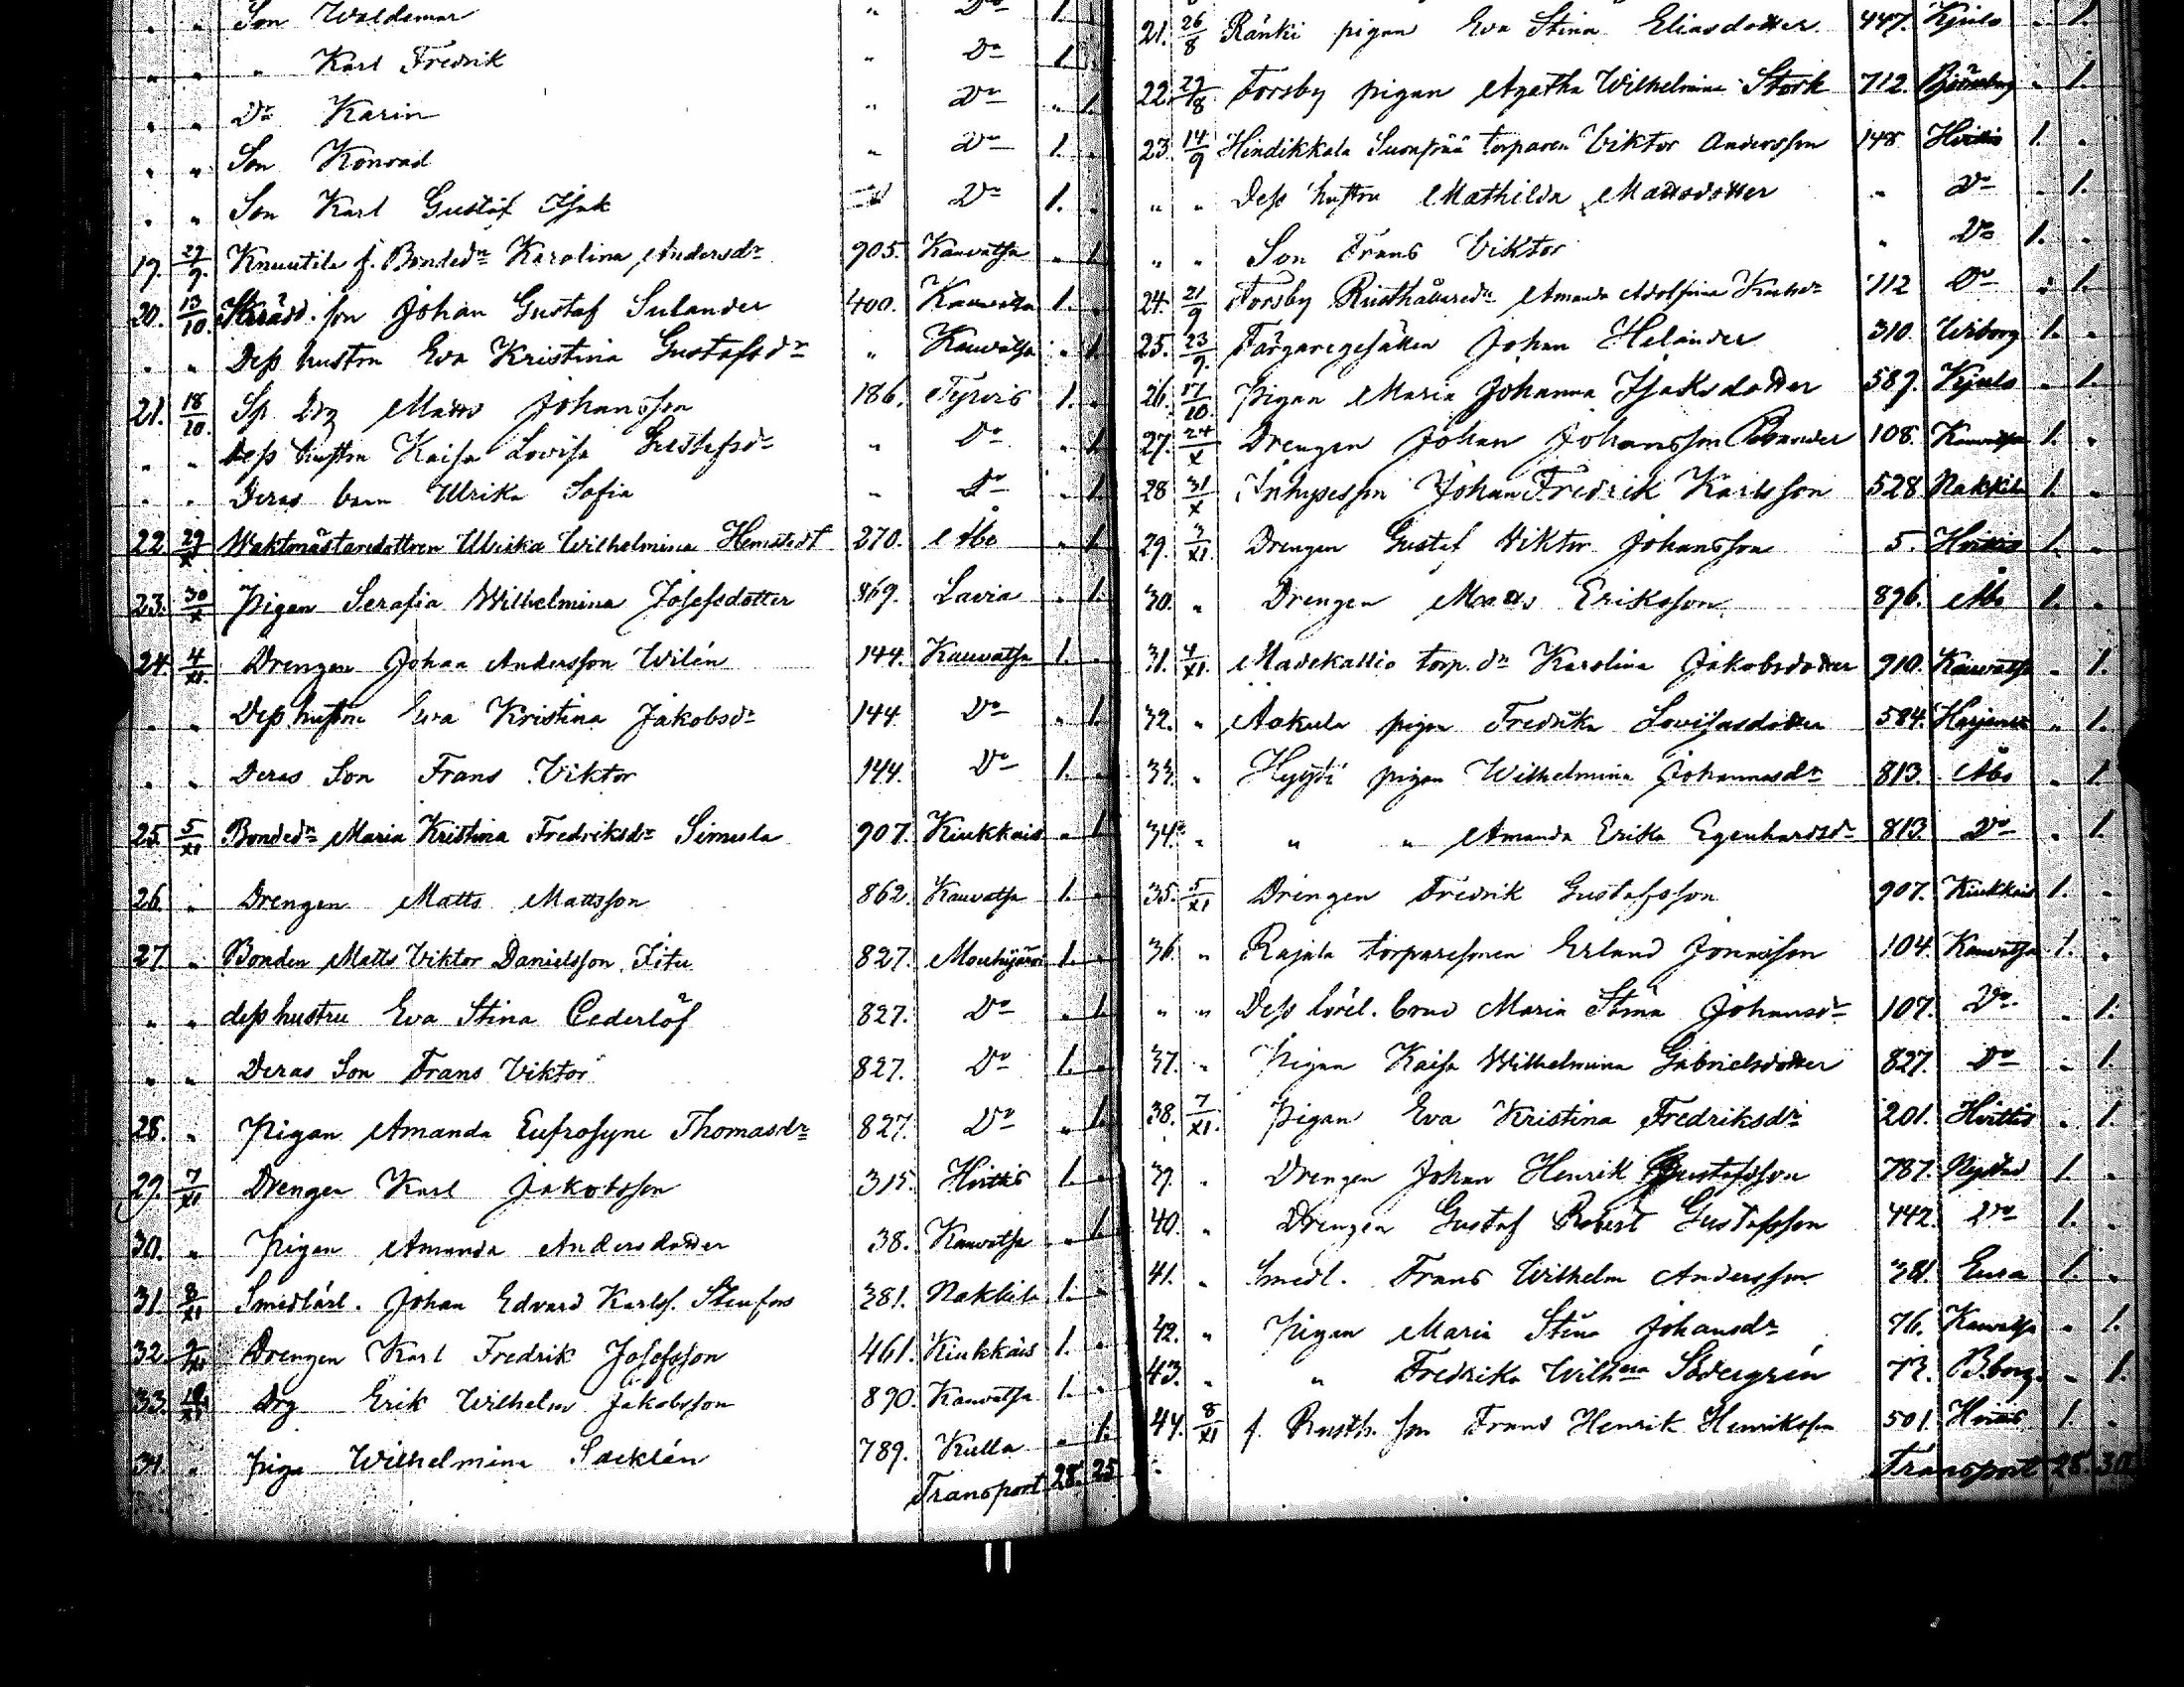 " " Son Waldemar " Do 1.
" " " Karl Fredrik " Do 1.
" " Dr Karin " Do " 1.
" " Son Konrad " Do 1. "
" " Son Karl Gustaf Isak Do 1. "
19. 27/9. Knuutila f. Bondedr Karolina Andersdr 905. Kauvatsa " 1.
20. 13/10 Skrädd. son Johan Gustaf Sulander 400. Kauvatsa 1. "
" " Dess hustru Eva Kristina Gustafsdr " Kauvatsa " 1.
21. 18/10. Sp. Drg Matts Johansson 186. Tyrvis 1. "
" " Dess hustru Kaisa Lovisa Gustafsdr " Do " 1.
" " Deras barn Ulrika Sofia " Do " 1.
22. 29/X Waktmästaredottren Ulrika Wilhelmina Hemstedt 270. Åbo " 1.
23. 30/X Pigan Serafia Wilhelmina Josefsdotter 869. Lavia " 1.
24. 4/XI. Drengen Johan Andersson Wilén 144. Kauvatsa 1. "
" " Dess hustru Eva Kristina Jakobsdr 144. Do " 1.
" " Deras Son Frans Viktor 144. Do 1. "
25. 5/XI Bondedr Maria Kristina Fredriksdr Simula 907. Kiukkais " 1.
26. " Drengen Matts Mattsson 862. Kauvatsa 1. "
27. " Bonden Matts Viktor Danielsson 827. Mouhijärvi 1. "
" " dess hustru Eva Stina Cederlöf 827. Do " 1.
" " Deras Son Frans Viktor 827. Do 1. "
28. " Pigan Amanda Eufrosyne Thomasdr 827. Do " 1.
29. 7/XI Drengen Karl Jakobsson 315. Hvittis 1. "
30. " Pigan Amanda Andersdotter 38. Kauvatsa " 1.
31. 8/XI Smedlärl. Johan Edvard Karlss. Stenfors 381. Nakkila 1. "
32. 9/XI Drengen Karl Fredrik Josefsson 461. Kiukkais 1. "
33. Drg Erik Wilhelm Jakobsson 890. Kauvatsa 1. "
34. " Piga Wilhelmina Sacklén 789. Kulla " 1.
Transport 28. 25.
21. 26/8 Ränki pigan Eva Stina Eliasdotter 447. Kjulo " 1.
22. 27/8 Forsby pigan Agatha Wilhelmina Stork 712. Björneborg " 1.
23. 14/9 Hindikkala Suonpää torparen Viktor Andersson 148 Hvittis 1. "
" " Dess hustru Mathilda Mattsdotter " Do " 1.
" " Son Frans Viktor " Do 1. "
24. 21/9 Forsby Rusthållaredr Amanda Adolfina 712 Do " 1.
25. 23/9. Färgaregesällen Johan Helander 310. Wiborg 1. "
26. 17/10. Pigan Maria Johanna Isaksdotter 587. Kjulo " 1.
27. 24/X Drengen Johan Johansson 108. Kauvatsa 1. "
28 31/X Inhysesson Johan Fredrik Karlsson 528 Nakkila 1. "
29. 3/XI. Drengen Gustaf Viktor Johansson 5. Hvittis 1. "
30. " Drengen Matts Eriksson 896. Åbo 1. "
31. 4/XI. Madekallio torp. dr Karolina Jakobsdotter 910. Kauvatsa " 1.
32. " Aakula pigan Fredrika Lovisasdotter 584. " 1.
33. " Hyysti pigan Wilhelmina Johannesdr 813. Åbo " 1.
34. " " " Amanda Erika Egenhardsdr 813. Do " 1.
35. 5/XI Drengen Fredrik Gustafsson 907. Kiukkais 1. "
36. " Rajala torparesonen Erland Jonasson 104. Kauvatsa 1. "
" " Dess brud Maria Stina Johansdr 107. Do " 1.
37. " Pigan Kaisa Wilhelmina Gabrielsdotter 827. Do " 1.
38. 7/XI. Pigan Eva Kristina Fredriksdr 201. Hvittis " 1.
39. " Drengen Johan Henrik Gustafsson 787. Nystad 1. "
40. " Drengen Gustaf Robert Gustafsson 442. Do 1. "
41. " Smedl. Frans Wilhelm Andersson 381. Eura 1. "
42. " Pigan Maria Stina Johansdr 76. Kauvatsa " 1.
43. " " Fredrika Wilhma Södergrén 73. B.borg. " 1.
44. 8/XI f. Rusth. son Frans Henrik Henriksson 501. Hvittis 1. "
Transport 28. 30.